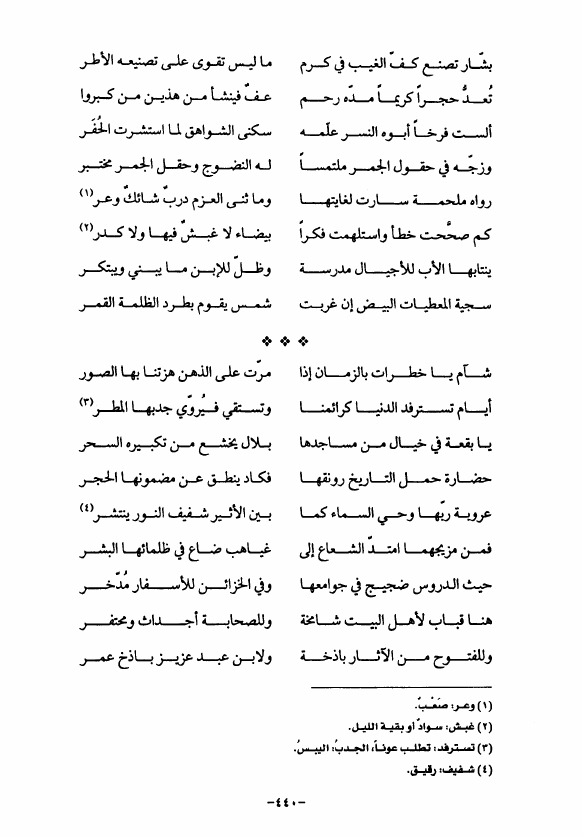 بشّار تصنع كفّ الغيب في كرم ما ليس تقوى على تصنيعه الأطر
تُعدُّ حجراً كريماً مدّه رحم عفّ فينشأ من هذين من كبروا
ألست فرخاً أبوه النسر علّمه سكنى الشواهق لما استشرت الحُفَر
وزجّه في حقول الجمر ملتمساً له النضوج وحقل الجمر مختبر
رواه ملحمة سارت لغايتها وما ثنى العزم دربٌ شائكٌ وعر(١)
كم صحَّحت خطأ واستلهمت فكراً بيضاء لا غبشٌ فيها ولا كدر(٢)
ينتابها الأب للأجيال مدرسة وظلّ للإبن ما يبني ويبتكر
سجية المعطيات البيض إن غربت شمس يقوم بطرد الظلمة القمر
❖ ❖ ❖
شآم يا خطرات بالزمان إذا مرّت على الذهن هزتنا بها الصور
أيام تسترفد الدنيا كرائمنا وتستقي فيُروّي جدبها المطر(٣)
يا بقعة في خيال من مساجدها بلال يخشع من تكبيره السحر
حضارة حمل التاريخ رونقها فكاد ينطق عن مضمونها الحجر
عروبة ربّها وحي السماء كما بين الأثير شفيف النور ينتشر(٤)
فمن مزيجهما امتدّ الشعاع إلى غياهب ضاع في ظلمائها البشر
حيث الدروس ضجيج في جوامعها وفي الخزائن للأسفار مُدّخر
هنا قباب لأهل البيت شامخة وللصحابة أجداث ومحتفر
وللفتوح من الآثار باذخة ولابن عبد عزيز باذخ عمر
(١) وعر: صَعْبٌ.
(٢) غبش: سوادٌ أو بقية الليل.
(٣) تسترفد: تطلب عوناً، الجدبُ: اليبسُ.
(٤) شفيف: رقيق.
-٤٤٠-